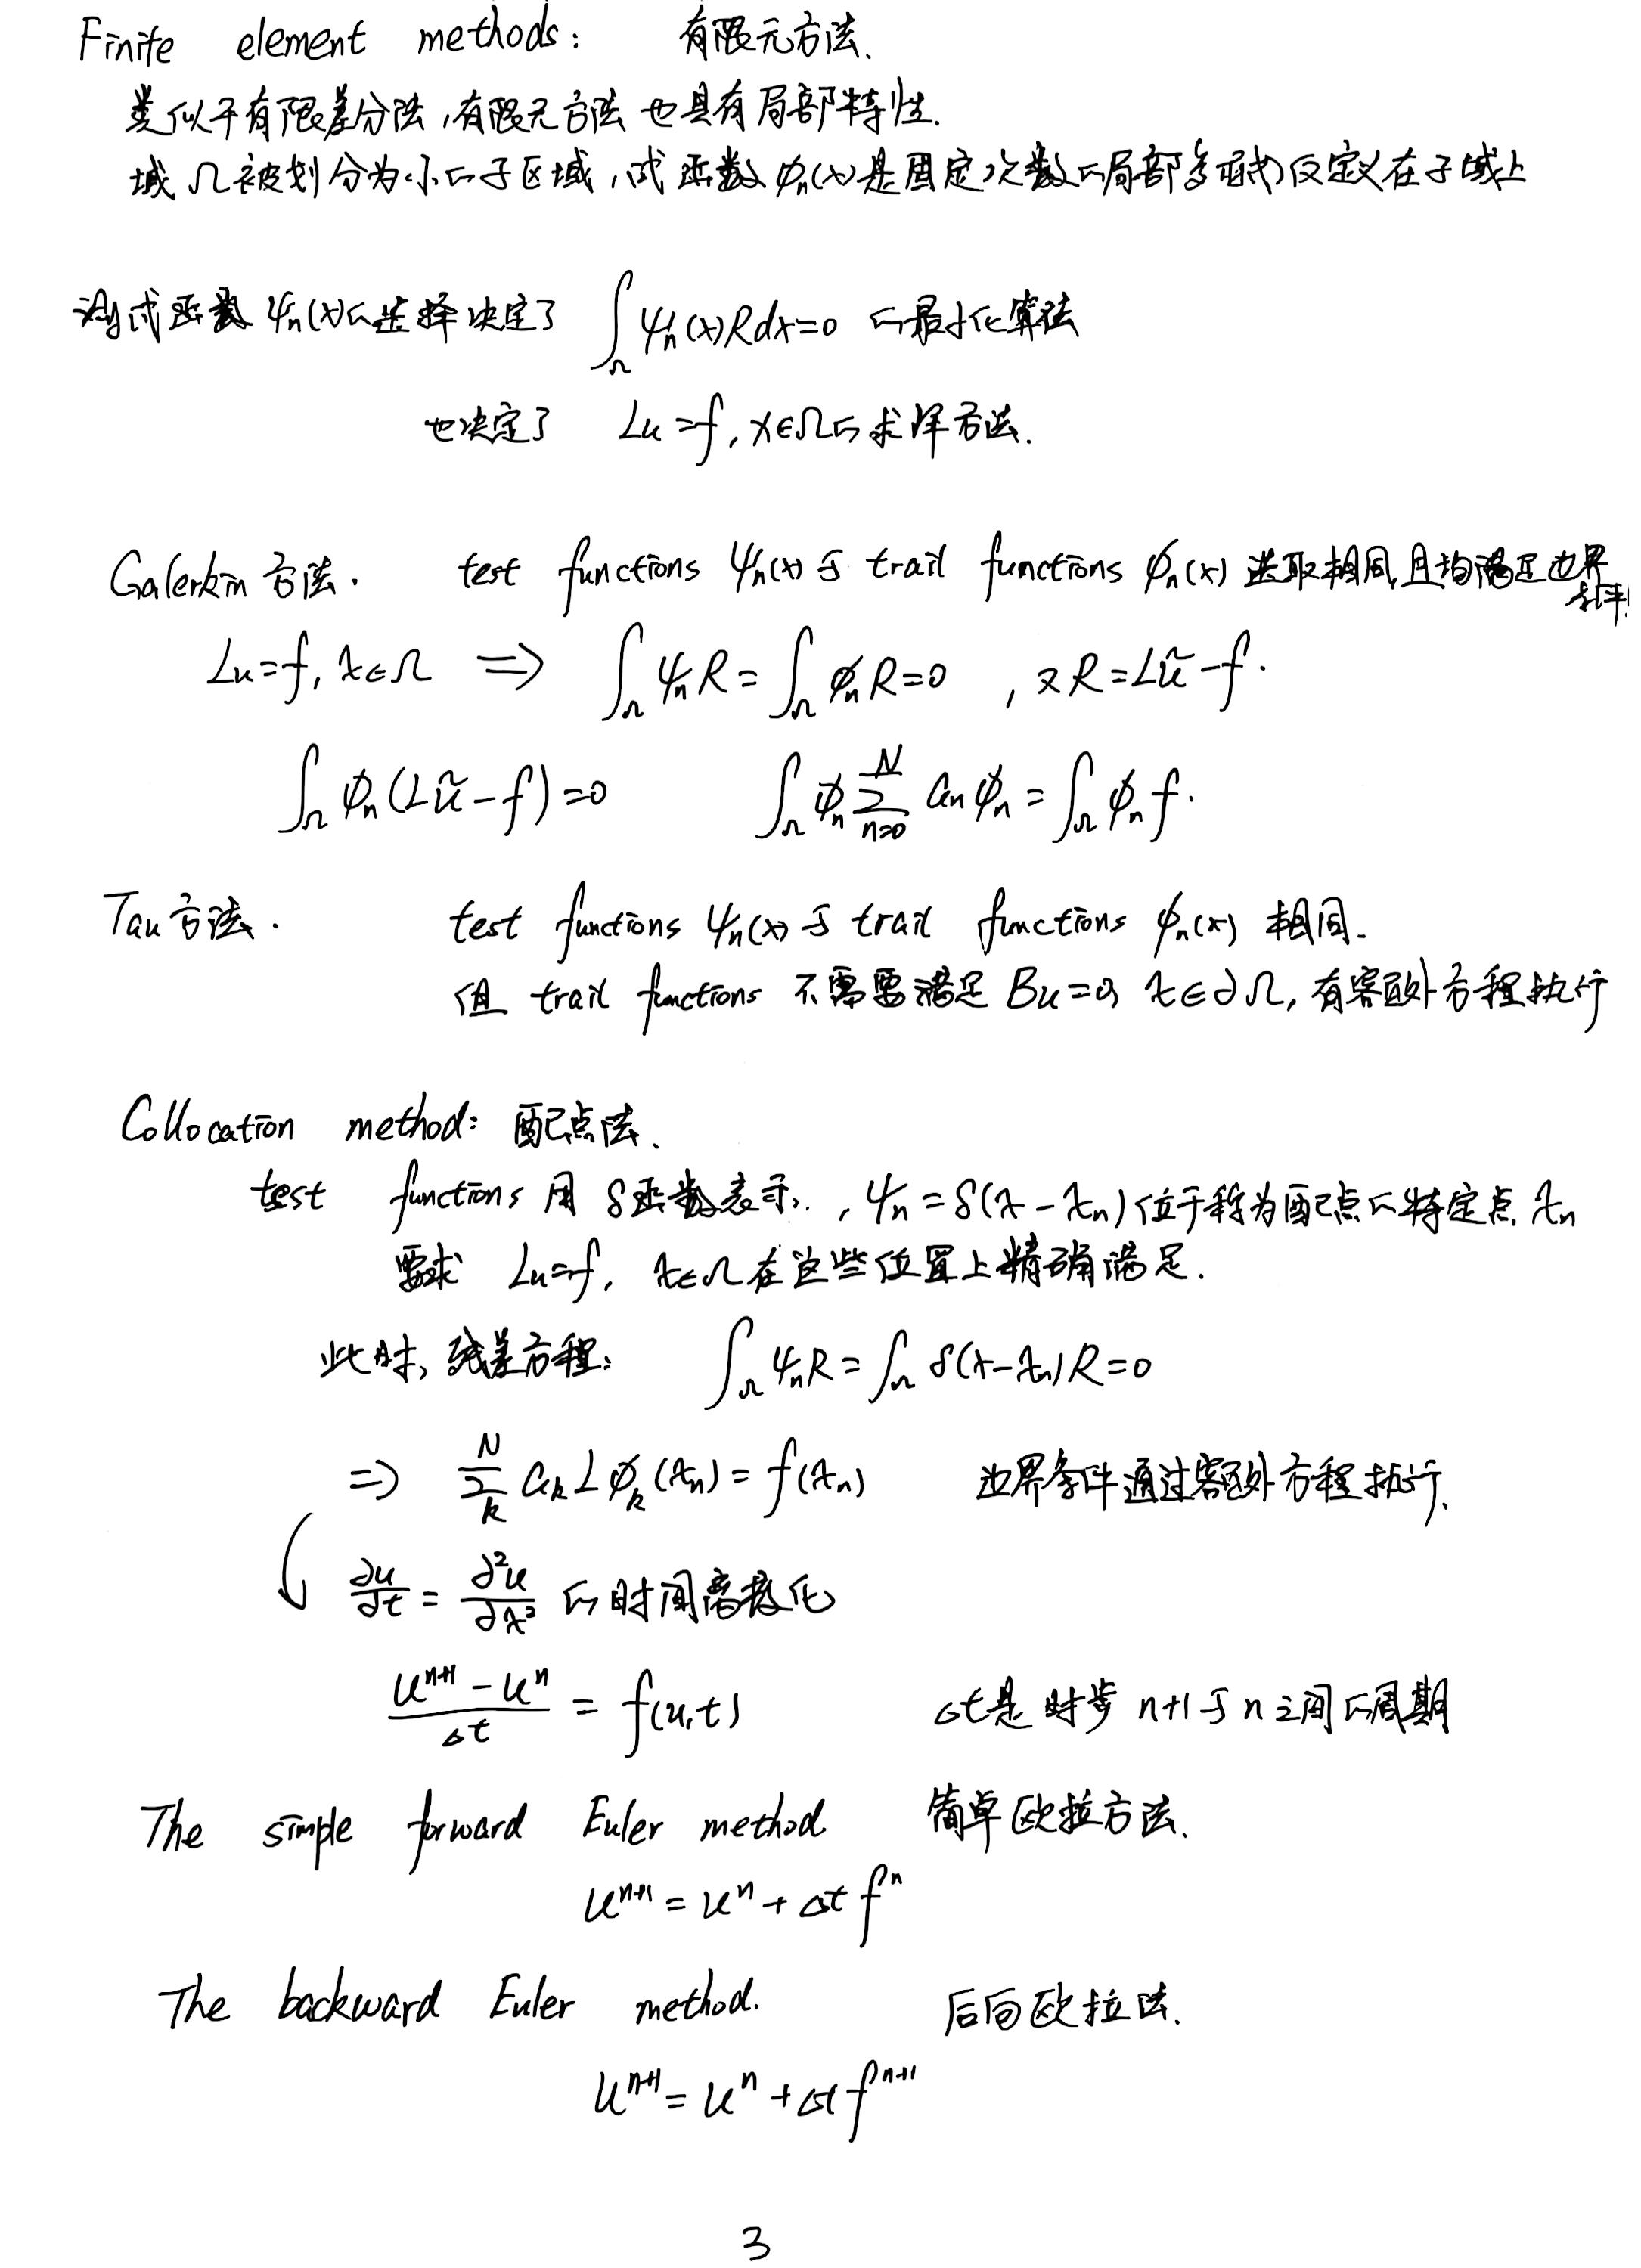 Finite element methods: 有限元方法.
类似于有限差分法,有限元方法也具有局部特性.
域 Ω 被划分为小的子区域,试函数 ϕₙ(x) 是固定次数的局部多项式仅定义在子域上
测试函数 ψₙ(x) 的选择决定了 ∫_Ω ψₙ(x) R dx = 0 的最小化算法
也决定了 Lu = f, x∈Ω 的求解方法.
Galerkin 方法. test functions ψₙ(x) 与 trail functions ϕₙ(x) 选取相同,且均满足边界条件!
Lu = f, x∈Ω ⟹ ∫_Ω ψₙ R = ∫_Ω ϕₙ R = 0 , 又 R = Lũ − f.
∫_Ω ϕₙ (Lũ − f) = 0 ∫_Ω ϕₙ ∑_{n=0}^{N} aₙ ϕₙ = ∫_Ω ϕₙ f.
Tau 方法. test functions ψₙ(x) 与 trail functions ϕₙ(x) 相同.
但 trail functions 不需要满足 Bu = 0, x∈∂Ω, 有额外方程执行
Collocation method: 配点法.
test functions 用 δ函数表示, ψₙ = δ(x − xₙ) 位于称为配点的特定点 xₙ
要求 Lu = f, x∈Ω 在这些位置上精确满足.
此时, 残差方程: ∫_Ω ψₙ R = ∫_Ω δ(x − xₙ) R = 0
⟹ ∑_k^N a_k L ϕ_k (xₙ) = f(xₙ) 边界条件通过额外方程执行.
∂u/∂t = ∂²u/∂x² 的时间离散化
(uⁿ⁺¹ − uⁿ)/Δt = f(u,t) Δt是时步 n+1 与 n 之间的周期
The simple forward Euler method 简单欧拉方法.
uⁿ⁺¹ = uⁿ + Δt fⁿ
The backward Euler method. 后向欧拉法.
uⁿ⁺¹ = uⁿ + Δt fⁿ⁺¹
3